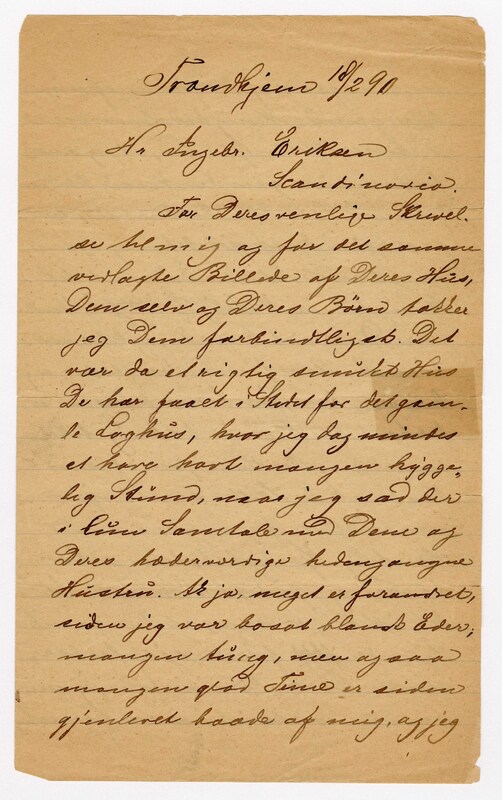 Trondhjem 18/2 90
Hr Ingebr. Eriksen
Scandinavia.
For Deres venlige Skrivel-
se til mig og for det samme
vedlagte Billede af Deres Hus,
Dem selv og Deres Børn takker
jeg Dem forbindtligst. Det
var da et rigtig smukt Hus
De har faaet i Stedet for det gam-
le Loghus, hvor jeg dog mindes
at have havt mangen hygge-
lig Stund, naar jeg sad der
i lun Samtale med Dem og
Deres hæderværdige hedengangne
Hustru. Ak ja, meget er forandret,
siden jeg var bosat blandt Eder;
mangen tung, men ogsaa
mangen glad Time er siden
gjenlevet baade af mig, og jeg